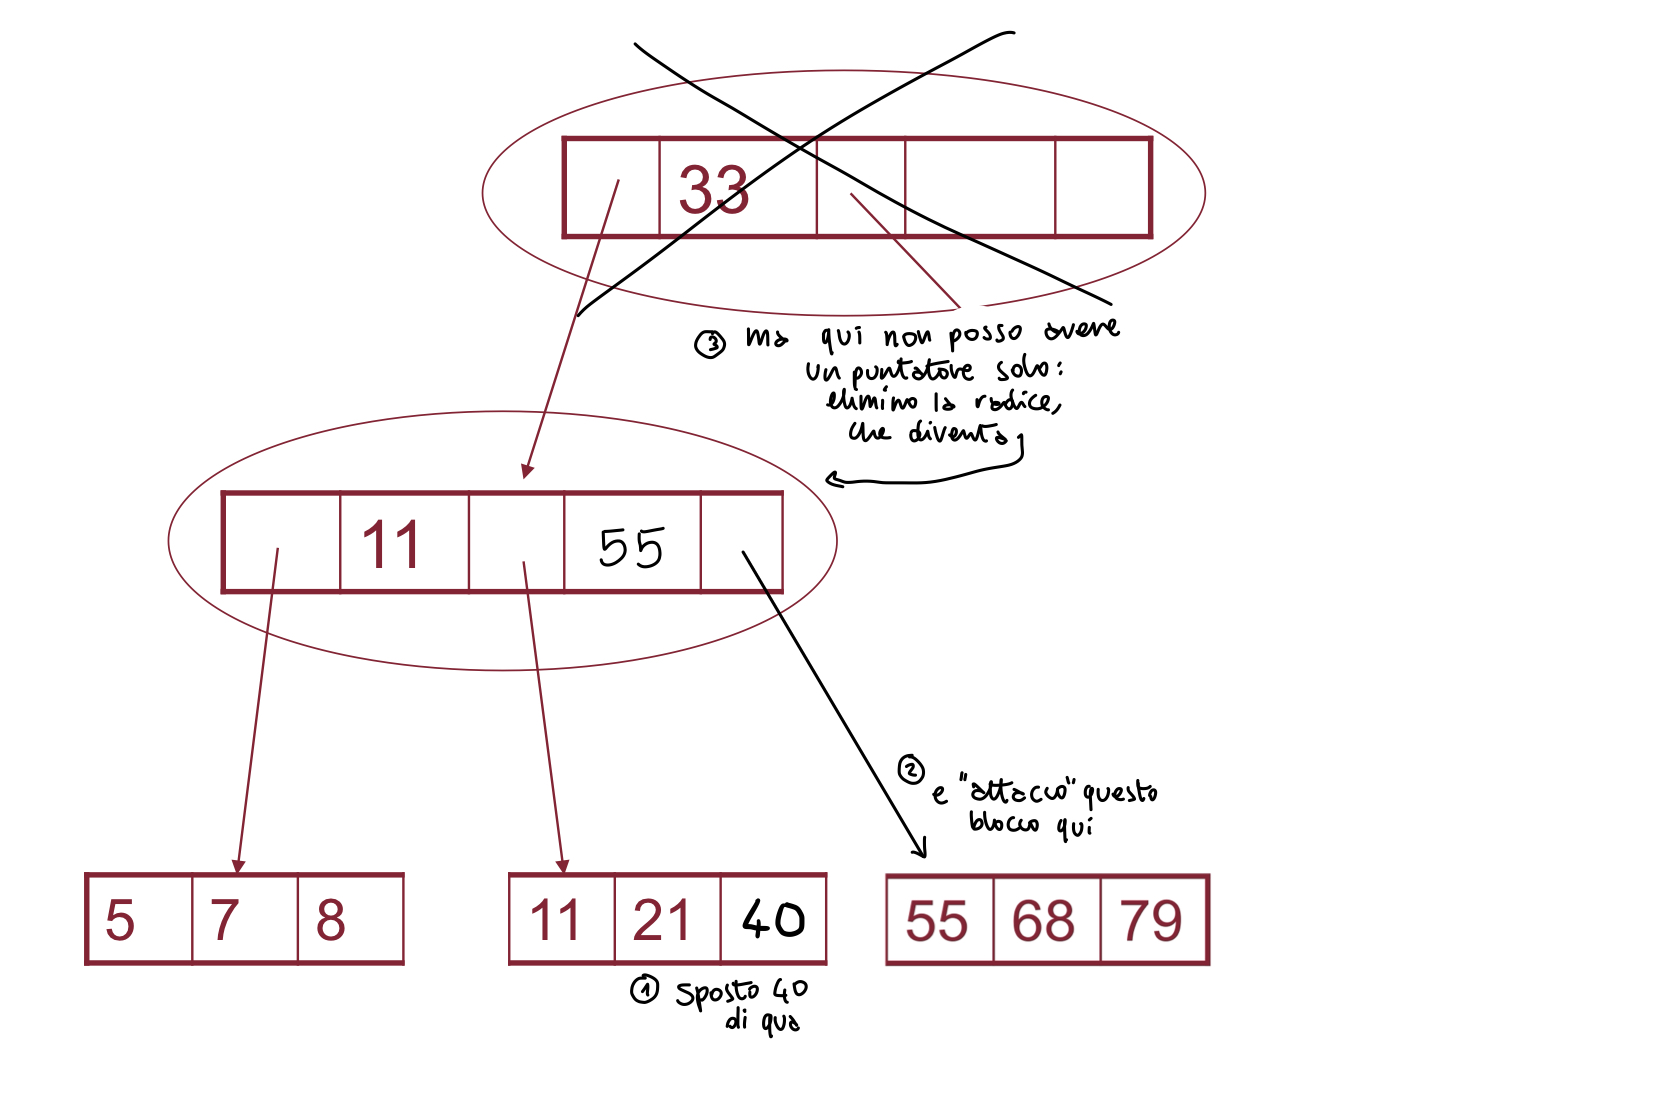 33
③ ma qui non posso avere
un puntatore solo:
elimino la radice,
che diventa
11 55
② e "attacco" questo
blocco qui
5 7 8 11 21 40 55 68 79
① Sposto 40
di qua